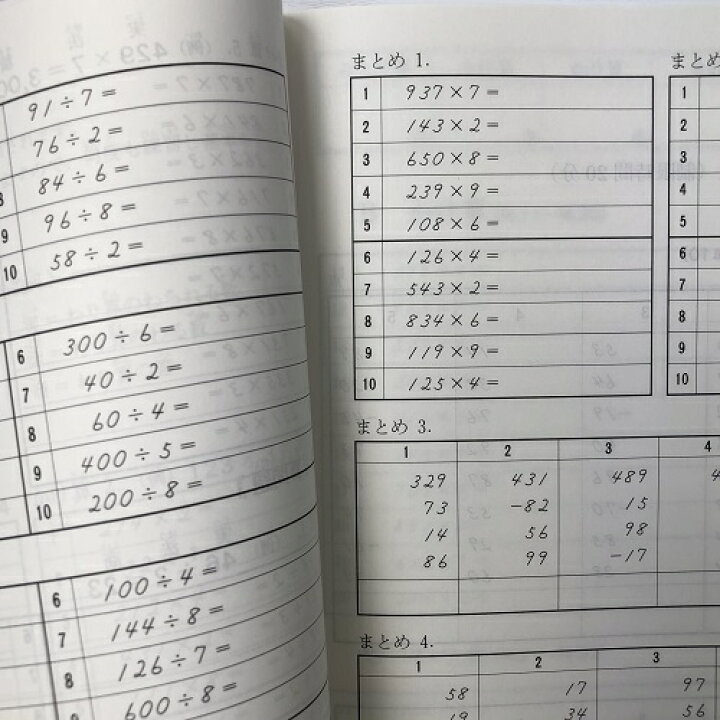 91÷7=
76÷2=
8 84÷6=
9 96÷8=
10 58÷2=
6 300÷6=
7 40÷2=
8 60÷4=
9 400÷5=
10 200÷8=
6 100÷4=
7 144÷8=
8 126÷7=
600÷8=
まとめ 1.
1 937×7=
2 143×2=
3 650×8=
4 239×9=
5 108×6=
6 126×4=
7 543×2=
8 834×6=
9 119×9=
10 125×4=
1
2
3
4
5
6
7
8
9
10
まとめ 3.
1 2 3 4
329 431 489
73 -82 15
14 56 98
86 99 -17
まとめ 4.
1 2 3
58 17 97
19 34 56